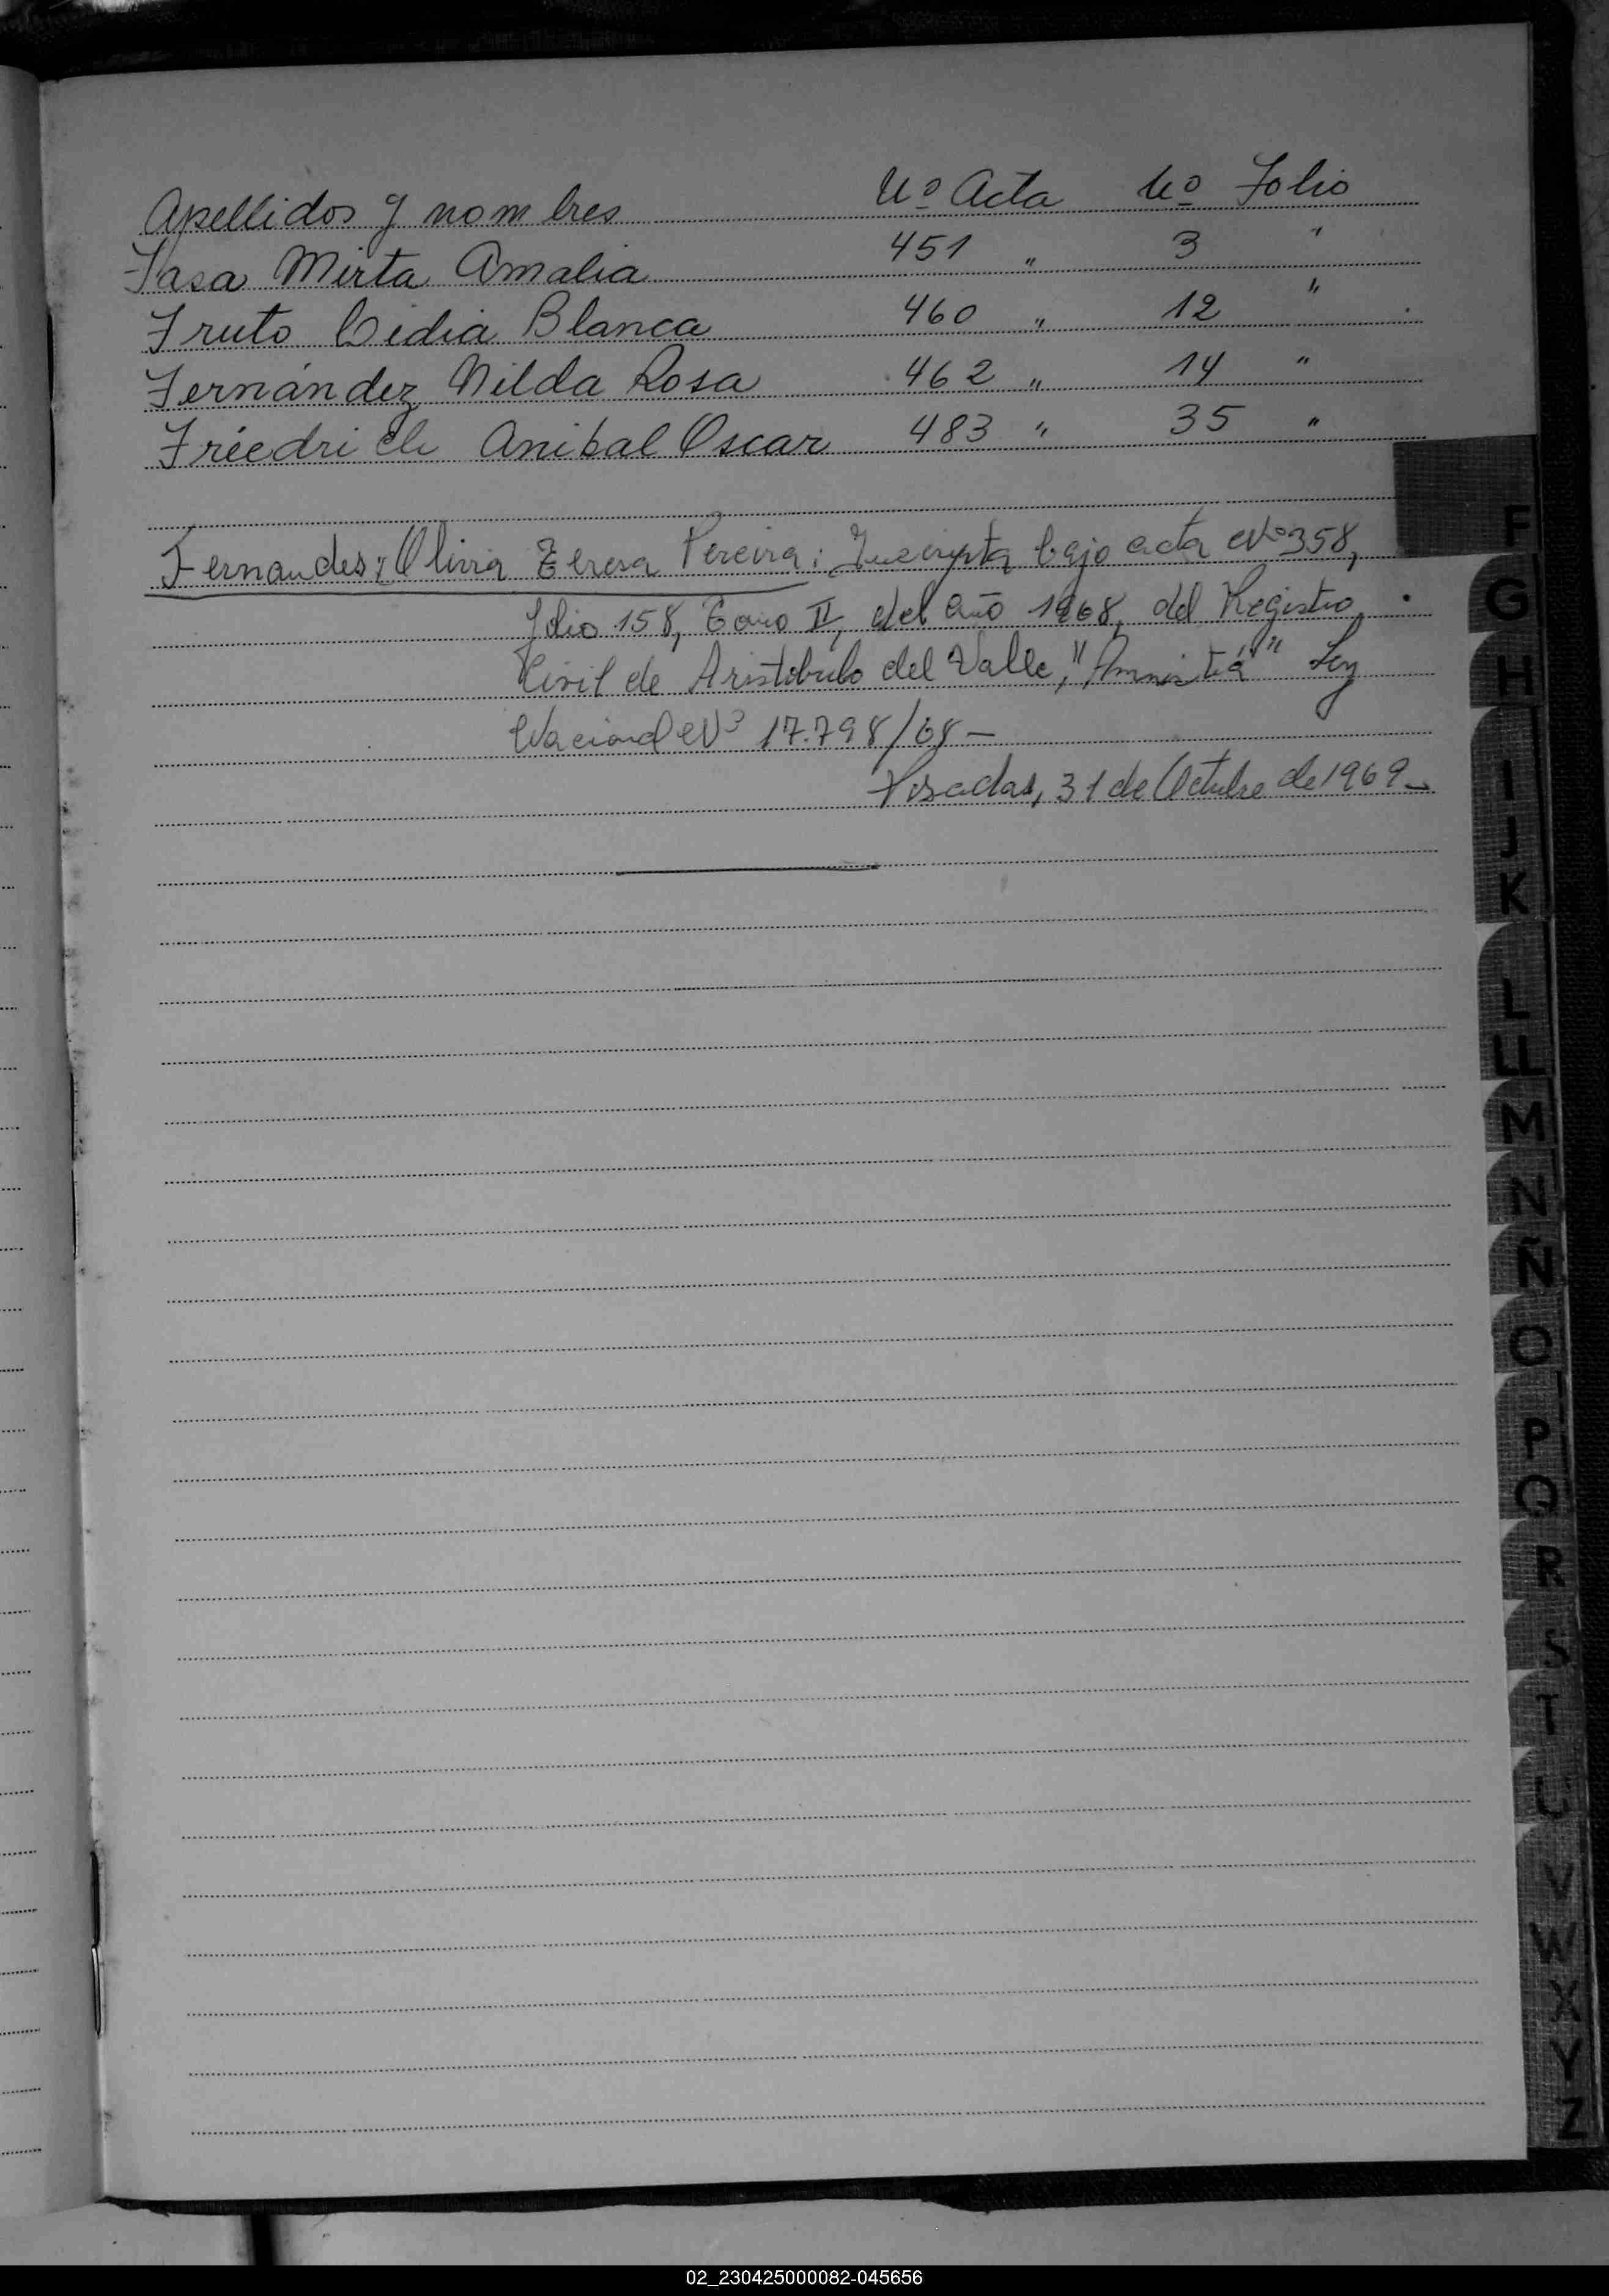 Apellidos y nombres Nº Acta Nº Folio
Fasa Mirta Amalia 451 " 3 "
Fruto Lidia Blanca 460 " 12 "
Fernández Nilda Rosa 462 " 14 "
Friedrich Anibal Oscar 483 " 35 "
Fernandes; Olivia Teresa Pereira: Inscripta bajo acta Nº 358,
folio 158, Tomo II, del año 1968, del Registro
Civil de Aristóbulo del Valle, "Amnistía" Ley
Nacional Nº 17.798/68 -
Posadas, 31 de Octubre de 1969 -
F
G
H
I
J
K
L
LL
M
N
Ñ
O
P
Q
R
S
T
U
V
W
X
Y
Z
02_230425000082-045656